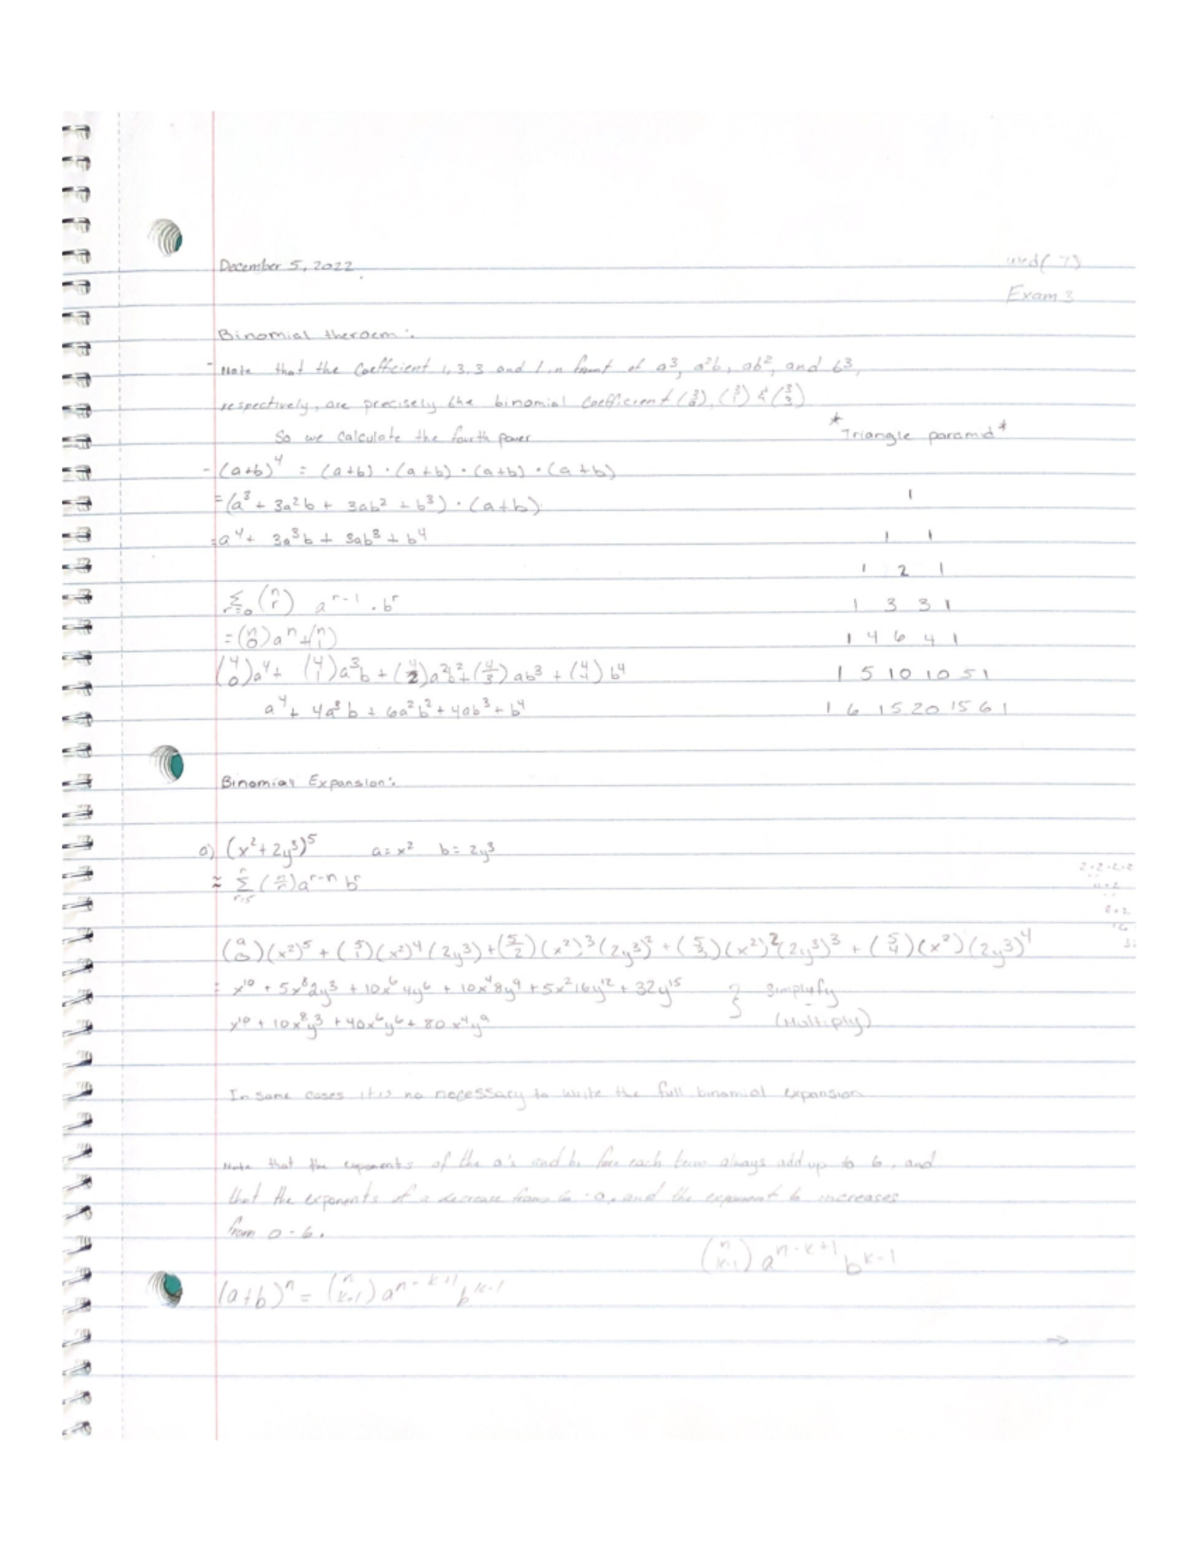 December 5, 2022
wed( 7)
Exam 3
Binomial theroem:
- Note that the Coefficient 1, 3, 3 and 1 in front of a³, a²b, ab², and b³,
respectively, are precisely the binomial Coefficient (3 0), (3 1) & (3 3)
So we calculate the fourth power
*Triangle paramid*
- (a+b)⁴ = (a+b) · (a+b) · (a+b) · (a+b)
= (a³ + 3a²b + 3ab² + b³) · (a+b)
= a⁴ + 3a³b + 3ab³ + b⁴
1
1 1
1 2 1
1 3 3 1
1 4 6 4 1
1 5 10 10 5 1
1 6 15 20 15 6 1
Σ r=0 (n r) a^r-1 · b^r
= (n 0) aⁿ + (n 1)
(4 0)a⁴ + (4 1)a³b + (4 2)a²b² + (4 3)ab³ + (4 4)b⁴
a⁴ + 4a³b + 6a²b² + 4ab³ + b⁴
Binomial Expansion:
a) (x²+2y³)⁵ a= x² b= 2y³
(x²)⁵ + (5 1)(x²)⁴(2y³) + (5 2)(x²)³(2y³)² + (5 3)(x²)²(2y³)³ + (5 4)(x²)(2y³)⁴
= x¹⁰ + 5x⁸2y³ + 10x⁶4y⁶ + 10x⁴8y⁹ + 5x²16y¹² + 32y¹⁵ } Simplyfy
x¹⁰ + 10x⁸y³ + 40x⁶y⁶ + 80x⁴y⁹ (Multiply)
In some cases it is no necessary to write the full binomial expansion
Note that the exponents of the a's and b for each term always add up to 6, and
that the exponents of a decrease from 6 - 0, and the exponent b increases
from 0 - 6.
(n k-1) a^n-k+1 b^k-1
(a+b)ⁿ = (n k-1) a^n-k+1 b^k-1
→